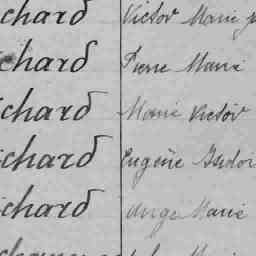 chard Victor Marie
chard Pierre Marie
chard Marie Victor
chard Eugène Isidor
chard Ange Marie